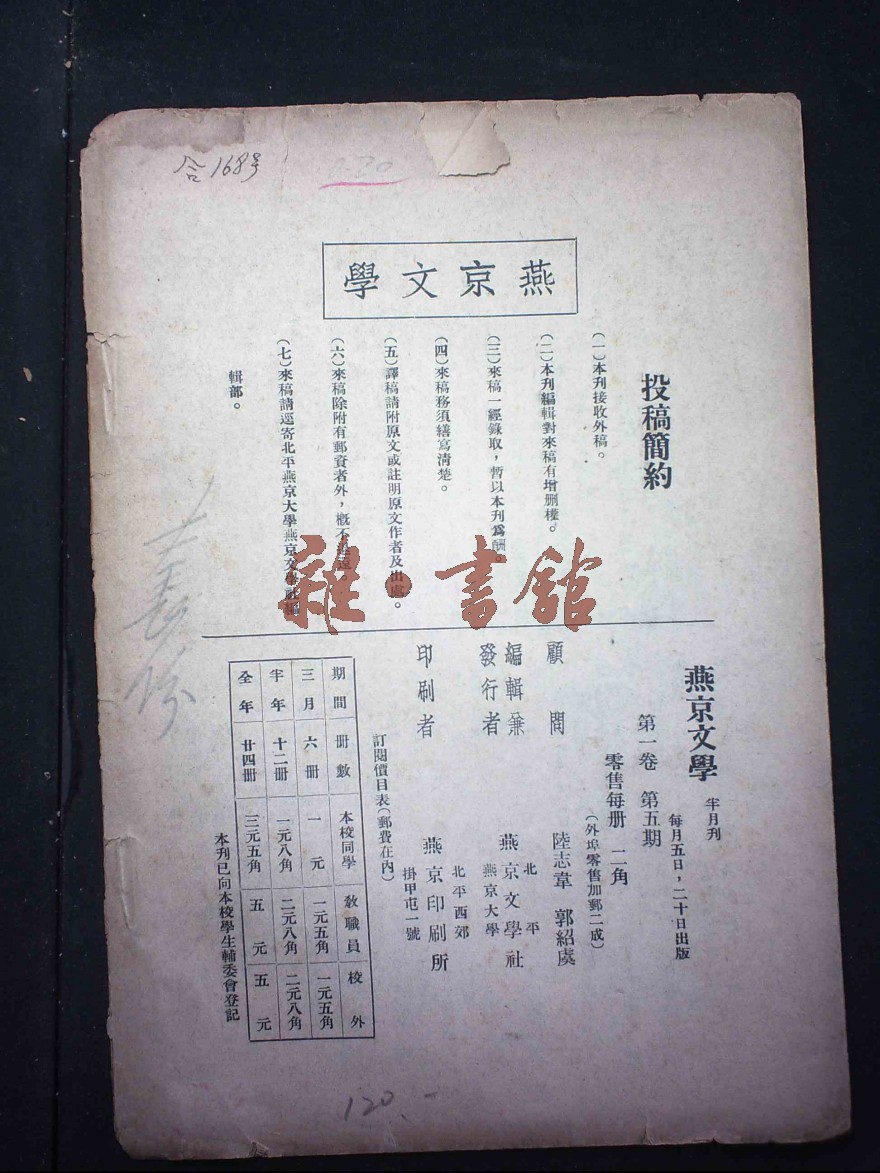 合168号
0.30
燕京文學
投稿簡約
(一)本刊接收外稿。
(二)本刊編輯對來稿有增删權。
(三)來稿一經錄取，暫以本刊爲酬。
(四)來稿務須繕寫清楚。
(五)譯稿請附原文或註明原文作者及出處。
(六)來稿除附有郵資者外，槪不退還。
(七)來稿請逕寄北平燕京大學燕京文學社編
輯部。
雜·書館
燕京文學 半月刊
每月五日，二十日出版
第一卷 第五期
零售每册 二角
(外埠零售加郵二成)
顧問 陸志韋 郭紹虞
編輯兼
發行者 北平燕京大學 燕京文學社
印刷者 燕京印刷所
北平西郊
掛甲屯一號
訂閱價目表(郵費在內)
期間 册數 本校同學 敎職員 校外
三月 六册 一元 一元五角 一元五角
半年 十二册 一元八角 二元八角 二元八角
全年 廿四册 三元五角 五元 五元
本刊已向本校學生輔委會登記
120.-